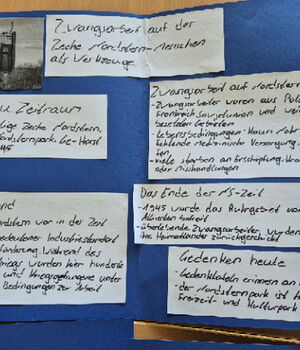 Zwangsarbeit auf der
Zeche Nordstern - Menschen
als Werkzeuge
u Zeitraum
lige Zeche Nordstern,
dsternpark, Ge-Horst
45
Zwangsarbeit auf Nordstern
- Zwangsarbeiter waren aus Pole
Frankreich Sowjetunion und weit
besetzten Gebieten
- Lebensbedingungen: Kaum Nahr
fehlende medizinische Versorgung,
- viele starben an Erschöpfung, Hu
oder Misshandlungen
nd
ordstern war in der Zeit
bedeutener Industriestandort
förderung. Während des
rieges wurden hier hunderte
und Kriegsgefangene unter
Bedingungen zur Arbeit
Das Ende der NS-Zeit
- 1945 wurde das Ruhrgebiet von
Alliierten befreit
- überlebende Zwangsarbeiter wurden
ihre Heimatländer zurückgebracht
Gedenken heute
- Gedenktafeln erinnern an
- der Nordsternpark ist h
Freizeit- und Kulturpark